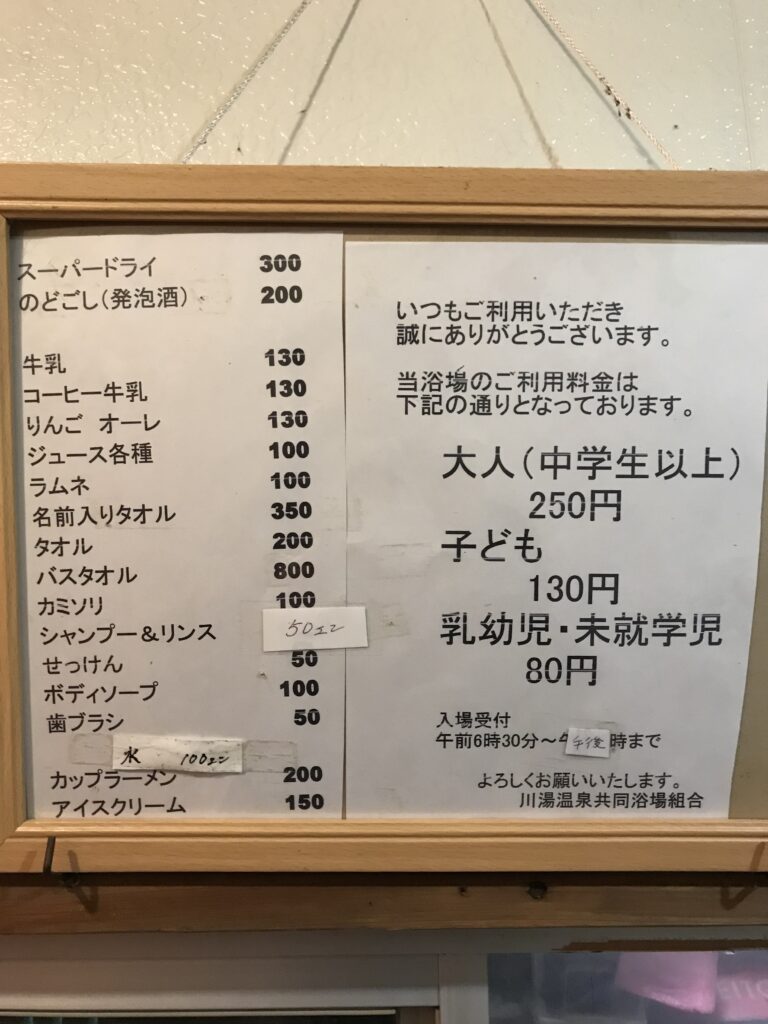 スーパードライ 300
のどごし（発泡酒） 200
牛乳 130
コーヒー牛乳 130
りんご オーレ 130
ジュース各種 100
ラムネ 100
名前入りタオル 350
タオル 200
バスタオル 800
カミソリ 100
シャンプー＆リンス 50エン
せっけん 50
ボディソープ 100
歯ブラシ 50
氷 100エン
カップラーメン 200
アイスクリーム 150
いつもご利用いただき
誠にありがとうございます。
当浴場のご利用料金は
下記の通りとなっております。
大人（中学生以上）
250円
子ども
130円
乳幼児・未就学児
80円
入場受付
午前6時30分～午後 時まで
よろしくお願いいたします。
川湯温泉共同浴場組合